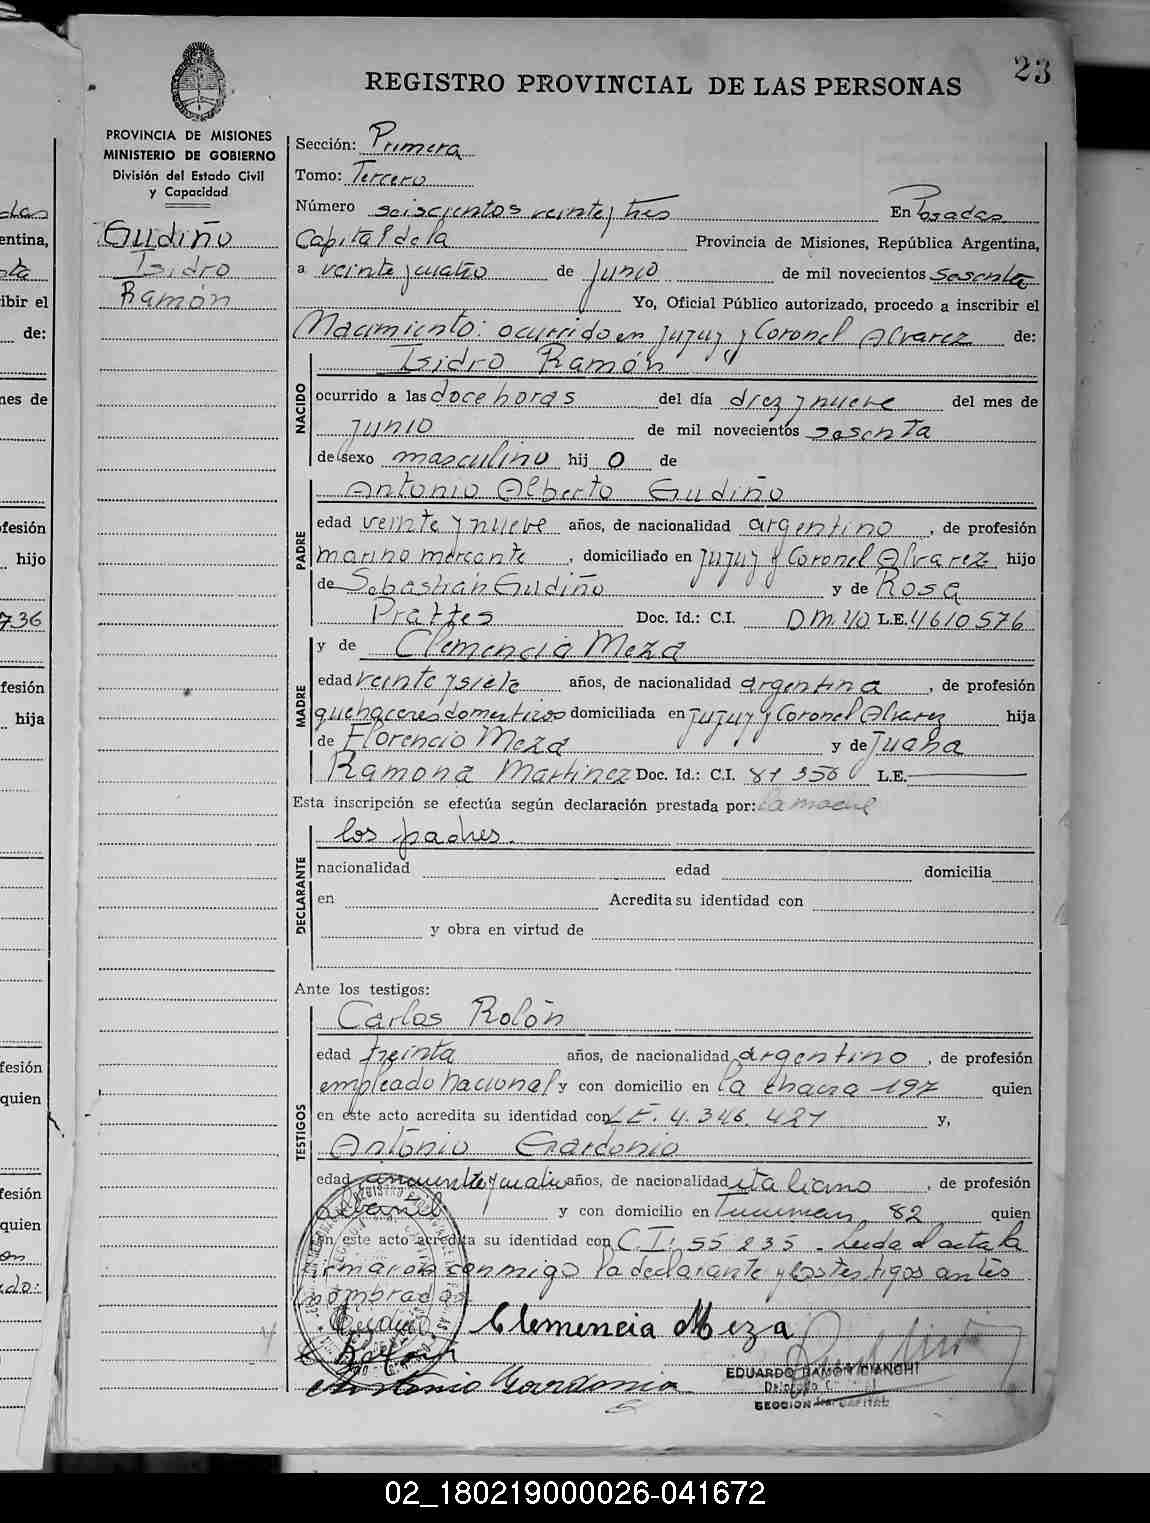 23
REGISTRO PROVINCIAL DE LAS PERSONAS
PROVINCIA DE MISIONES
MINISTERIO DE GOBIERNO
División del Estado Civil
y Capacidad
Gudiño
Isidro
Ramón
Sección: Primera
Tomo: Tercero
Número seiscientos veinte y tres En Posadas
Capital de la Provincia de Misiones, República Argentina,
a veinte y cuatro de junio de mil novecientos sesenta
Yo, Oficial Público autorizado, procedo a inscribir el
Nacimiento: ocurrido en Jujuy y Coronel Alvarez de:
Isidro Ramón
NACIDO
ocurrido a las doce horas del día diez y nueve del mes de
junio de mil novecientos sesenta
de sexo masculino hij o de
Antonio Alberto Gudiño
PADRE
edad veinte y nueve años, de nacionalidad argentino, de profesión
marino mercante, domiciliado en Jujuy y Coronel Alvarez hijo
de Sebastián Gudiño y de Rosa
Prattes Doc. Id.: C.I. DM. 40 L.E. 4610576
y de Clemencia Meza
MADRE
edad veinte y siete años, de nacionalidad argentina, de profesión
quehaceres domesticos domiciliada en Jujuy y Coronel Alvarez hija
de Florencio Meza y de Juana
Ramona Martinez Doc. Id.: C.I. 81 356 L.E.
Esta inscripción se efectúa según declaración prestada por: la madre
los padres.
DECLARANTE
nacionalidad edad domicilia
en Acredita su identidad con
y obra en virtud de
Ante los testigos:
TESTIGOS
Carlos Rolón
edad treinta años, de nacionalidad argentino, de profesión
empleado nacional y con domicilio en la chacra 197 quien
en este acto acredita su identidad con L.E. 4.346.427 y,
Antonio Gardonio
edad cincuenta y cuatro años, de nacionalidad italiano, de profesión
albanil y con domicilio en Tucuman 82 quien
en este acto acredita su identidad con C.I: 55 235. Leida el acta la
firmaron conmigo la declarante y los testigos antes
nombrados
Gudiño Clemencia Meza
C Rolon
Antonio Gardonio
EDUARDO RAMÓN BIANCHI
SECCION 1ra CAPITAL
entina,
ibir el
de:
nes de
ofesión
hijo
736
fesión
hija
fesión
quien
fesión
quien
02_180219000026-041672